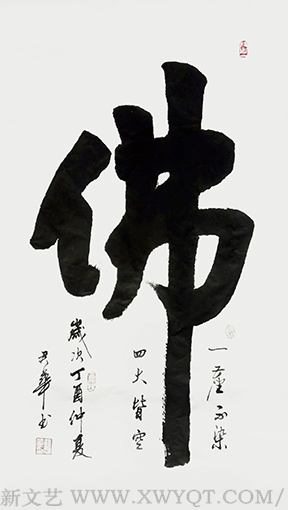 佛
一塵不染
四大皆空
歲次丁酉仲夏
君華书
新文艺 www.xwyqt.com/